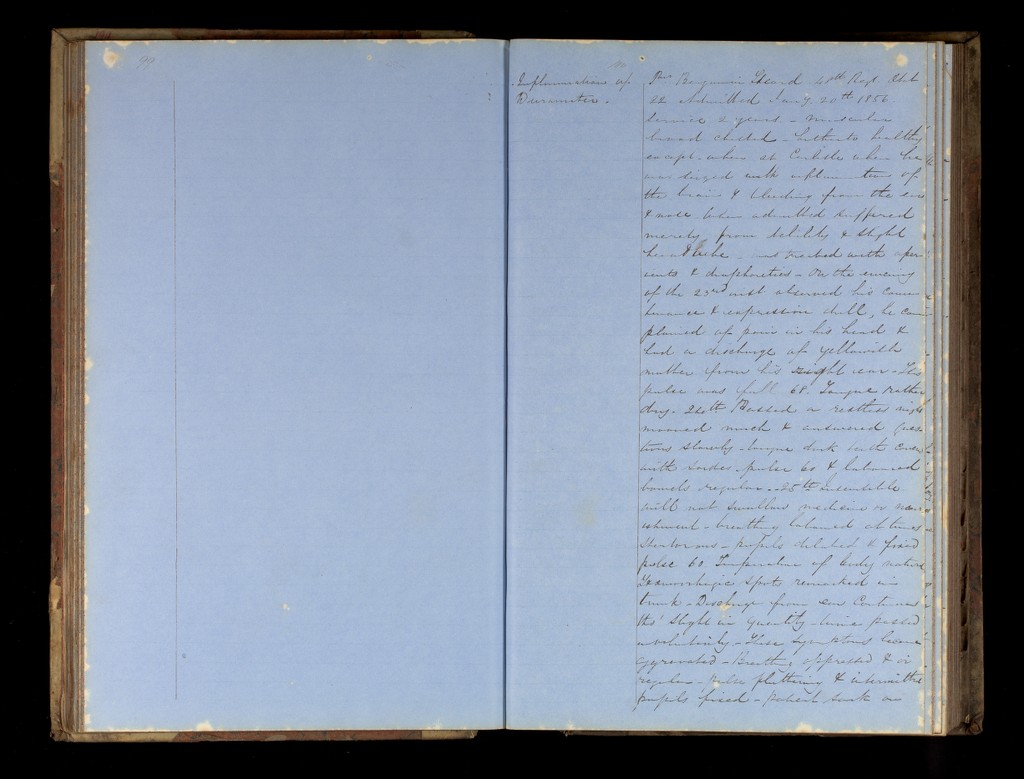 99
Inflammation of
Dura mater.
Benjamin 40th Regt
22 Admitted Jany. 20th 1856
Service 2 years - muscular
broad chested - hitherto healthy
except when at Carlisle when he
was seized with inflammation of
the brain & bleeding from the ear
& nose when admitted suffered
merely from debility & slight
headache - treated with aperi
ents & diaphoretics - On the evening
of the 23rd inst observed his coun
tenance & expression dull, he com
plained of pain in his head &
had a discharge of yellowish
matter from his right ear - His
pulse was full 68. Tongue rather
dry. 24th Passed a restless night
moaned much & answered ques
tions slowly - tongue dark teeth cover
with sordes - pulse 60 & laboured
bowels regular - 25th insensible
will not swallow medicine or nour
ishment - breathing laboured at times
stertorous - pupils dilated & fixed
pulse 60 Temperature of body natural
Hemorrhagic spots remarked on
trunk - Discharge from ear continues
tho' slight in quantity - urine passed
involuntarily - These symptoms became
aggravated - Breathing oppressed & ir
regular - Pulse fluttering & intermitting
pupils fixed - patient sunk on